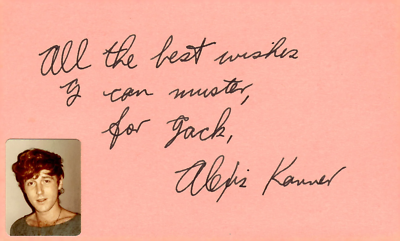 All the best wishes
I can muster,
for Jack,
Alexis Kanner